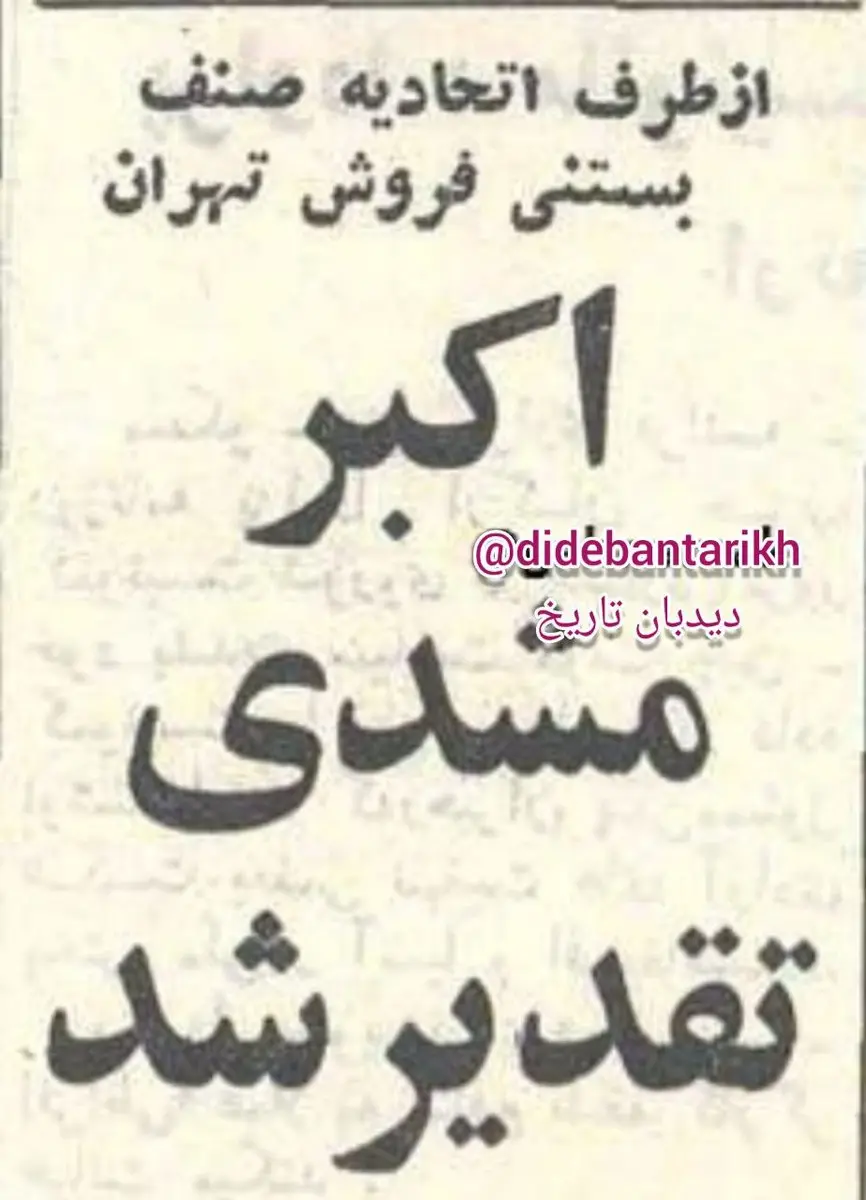 ازطرف اتحادیه صنف
بستنی فروش تهران
اکبر
@didebantarikh
دیدبان تاریخ
مشدی
تقدیر شد